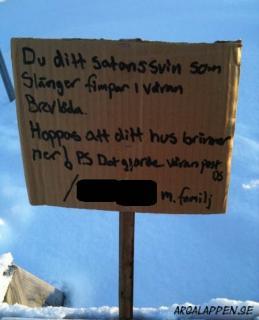 Du ditt satanssvin som
slänger fimpar i våran
Brevlåda.
Hoppas att ditt hus brinner
ner! PS Det gjorde våran post
DS
/ m. familj
ARGALAPPEN.SE